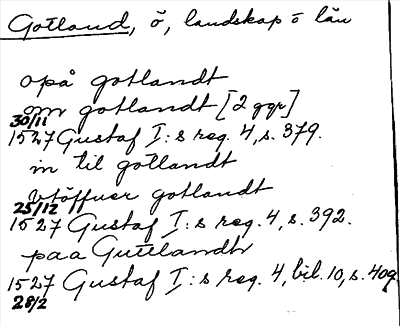 Gotland, ö, landskap o län
opå gotlandt
om gotlandt [2 ggr]
30/11
1527 Gustaf I:s reg. 4, s. 379.
in til gotlandt
vtöffuer gotlandt
25/12
1527 Gustaf I:s reg. 4, s. 392.
paa Gutlandh
1527 Gustaf I:s reg. 4, bil. 10, s. 409
28/2